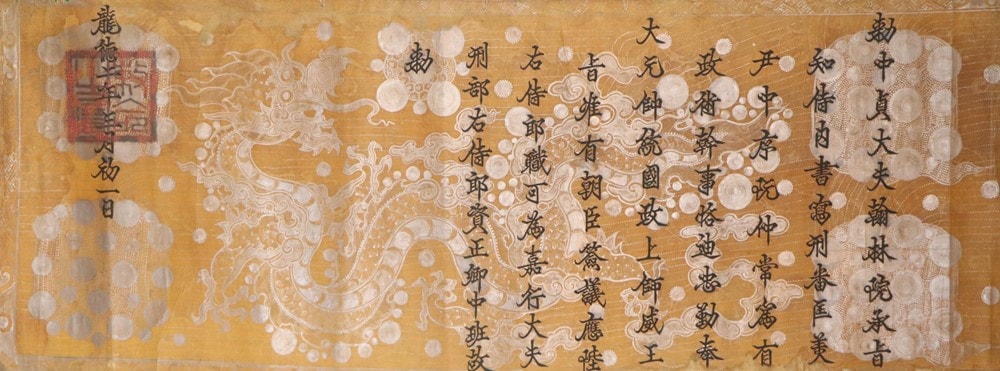 勅中貞大夫翰林院承旨
知侍内書寫刑番匡美
尹中序阮仲常為有
政術幹事恪迪忠勤奉
大元帥統國政上師威王
旨準有朝臣僉議應陞
右侍郎職可為嘉行大夫
刑部右侍郎資正卿中班故
勅
龍德二年三月初一日